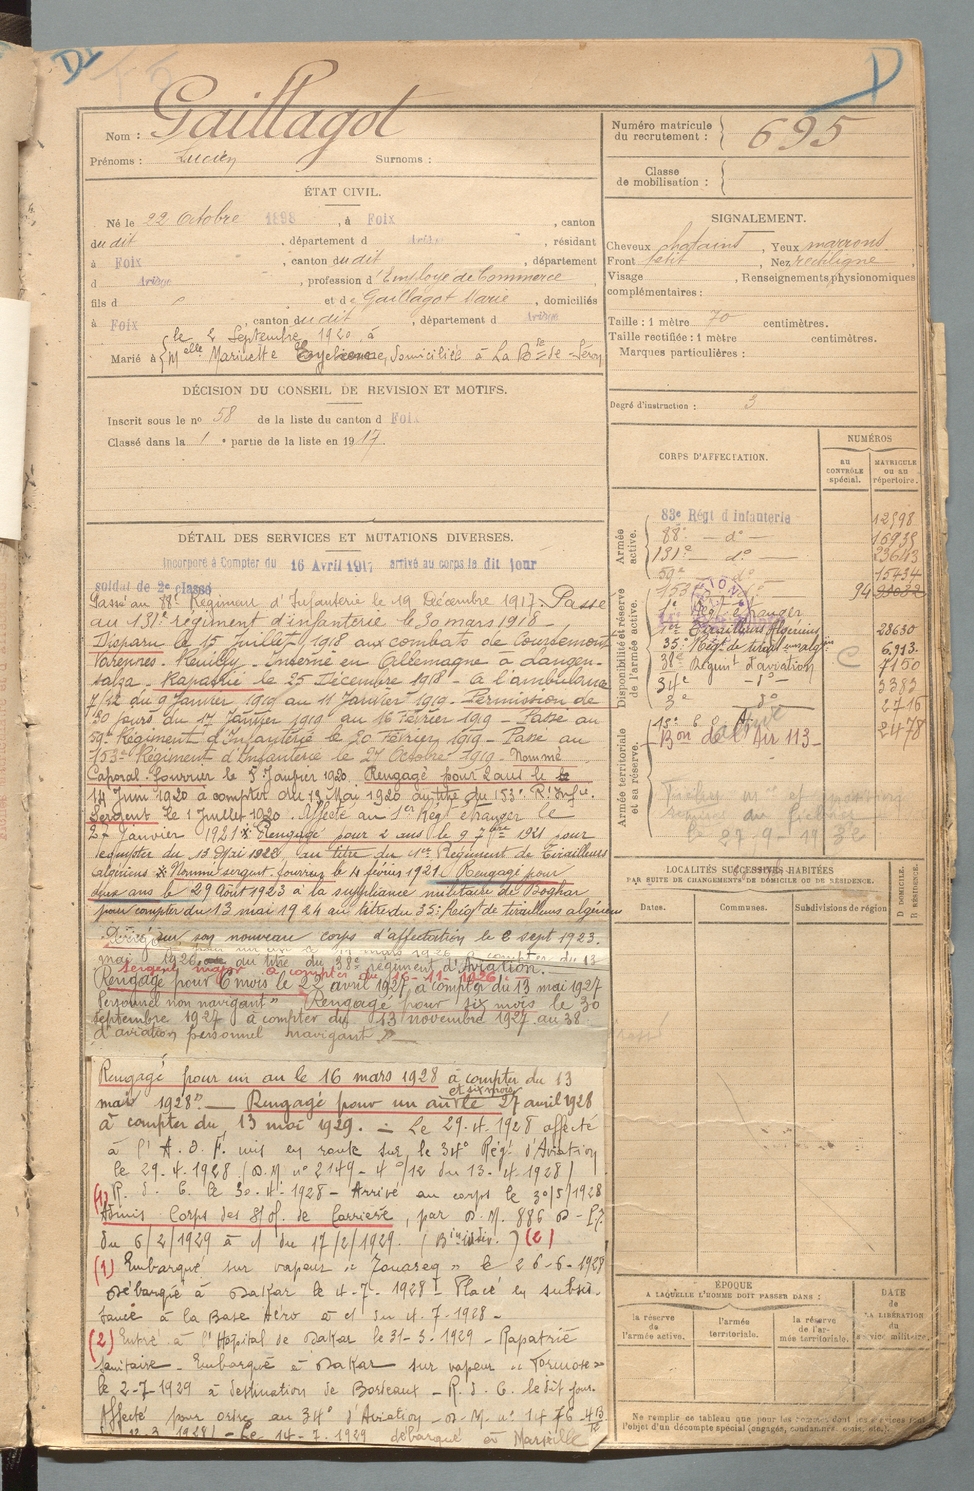 D
Nom : Gaillagot
Prénoms : Lucien Surnoms :
Numéro matricule du recrutement : 695
Classe de mobilisation :
ÉTAT CIVIL.
Né le 22 Octobre 1898, à Foix, canton
du dit, département d Ariège, résidant
à Foix, canton du dit, département
d Ariège, profession d'Employé de Commerce
fils d et de Gaillagot Marie, domiciliés
à Foix, canton du dit, département d Ariège
Marié à le 2 Septembre 1920 à
Melle Marinette domiciliée à La Bde de
SIGNALEMENT.
Cheveux chatains, Yeux marrons,
Front petit, Nez rectiligne,
Visage , Renseignements physionomiques
complémentaires :
Taille : 1 mètre 70 centimètres.
Taille rectifiée : 1 mètre centimètres.
Marques particulières :
Degré d'instruction : 3
DÉCISION DU CONSEIL DE REVISION ET MOTIFS.
Inscrit sous le no 58 de la liste du canton d Foix
Classé dans la 1e partie de la liste en 1917.
DÉTAIL DES SERVICES ET MUTATIONS DIVERSES.
Incorporé à Compter du 16 Avril 1917 arrivé au corps le dit jour
soldat de 2e classe
Passé au 88e Régiment d'Infanterie le 19 Décembre 1917. Passé
au 131e régiment d'infanterie le 30 mars 1918 -
Disparu le 15 Juillet 1918 aux combats de Courtemont
Varennes - Reuilly - Interné en Allemagne à Langen-
salza - Rapatrié le 25 Décembre 1918 - à l'ambulance
7/12 du 9 Janvier 1919 au 11 Janvier 1919 - Permission de
30 jours du 17 Janvier 1919 au 16 Février 1919 - Passé au
59e Régiment d'Infanterie le 20 Février 1919 - Passé au
153e Régiment d'Infanterie le 27 Octobre 1919 - Nommé
Caporal-fourrier le 5 Janvier 1920. Rengagé pour 2 ans le
14 Juin 1920 à compter du 13 Mai 1920 au titre du 153e R. Infie.
Sergent le 1 Juillet 1920. Affecté au 1er Régt étranger le
27 Janvier 1921 x Rengagé pour 2 ans le 9 7bre 1921 pour
compter du 13 Mai 1922, au titre du 1er Régiment de Tirailleurs
algériens x Nommé sergent-fourrier le 4 février 1921. Rengagé pour
deux ans le 29 Août 1923 à la suppléance militaire de Boghar
pour compter du 13 mai 1924 au titre du 35e Régt de tirailleurs algériens
Dirigé sur son nouveau corps d'affectation le 2 sept 1923.
mai 1926 au titre du 38e régiment d'Aviation.
sergent major à compter du 16-11-1926
Rengagé pour 6 mois le 22 avril 1927, à compter du 13 mai 1927
Personnel non navigant" Rengagé pour six mois le 30
septembre 1927 à compter du 13 novembre 1927 au 38
d'aviation personnel navigant
Rengagé pour un an le 16 mars 1928 à compter du 13
mai 1928" — Rengagé pour un an et six mois le 27 avril 1928
à compter du 13 mai 1929. - Le 29.4.1928 affecté
à l'A.O.F. mis en route sur le 34e Régt d'Aviation
le 29.4.1928 (D.M no 2149-4 0/12 du 13.4.1928)
(1) R. d. C. le 30.4.1928 - Arrivé au corps le 30/5/1928
Admis Corps des S/of. de Carrière, par D.M. 886
du 6/2/1929 à c/ du 17/2/1929. (2)
(1) Embarqué sur vapeur "Touareg" le 26-6-1928
Débarqué à Dakar le 4-7-1928 - Placé en subsis-
tance à la Base Aéro à c/ du 4-7-1928 -
(2) Entré à l'Hôpital de Dakar le 31-5-1929 - Rapatrié
sanitaire - Embarqué à Dakar sur vapeur "Formose"
le 2-7-1929 à destination de Bordeaux - R. d. C. le dit jour.
Affecté pour ordre au 34e d'Aviation - D.M. no 1476
Le 14-7-1929 débarqué à Marseille
CORPS D'AFFECTATION.
NUMÉROS
AU CONTRÔLE spécial.
MATRICULE ou au répertoire.
Armée active.
Disponibilité et réserve de l'armée active.
Armée territoriale et sa réserve.
83e Régt d infanterie 12598
88e - do - 16939
131e - do - 23643
59e do 15434
153e - do - 94
1er Régt étranger
1er Tirailleurs Algériens 28630
35e Régt de tiraill. algériens 6913
38e Régimt d'aviation C 7150
34e - do - 3383
3e do 2716
Bon de l'Air 113 - 2478
le 27-9-
LOCALITÉS SUCCESSIVES HABITÉES
PAR SUITE DE CHANGEMENTS DE DOMICILE OU DE RÉSIDENCE.
Dates. Communes. Subdivisions de région
D DOMICILE.
R RÉSIDENCE.
ÉPOQUE
A LAQUELLE L'HOMME DOIT PASSER DANS :
la réserve de l'armée active.
l'armée territoriale.
la réserve de l'armée territoriale.
DATE de LA LIBÉRATION du service militaire.
Ne remplir ce tableau que pour les hommes dont les services font
l'objet d'un décompte spécial (engagés, condamnés, omis, etc.).